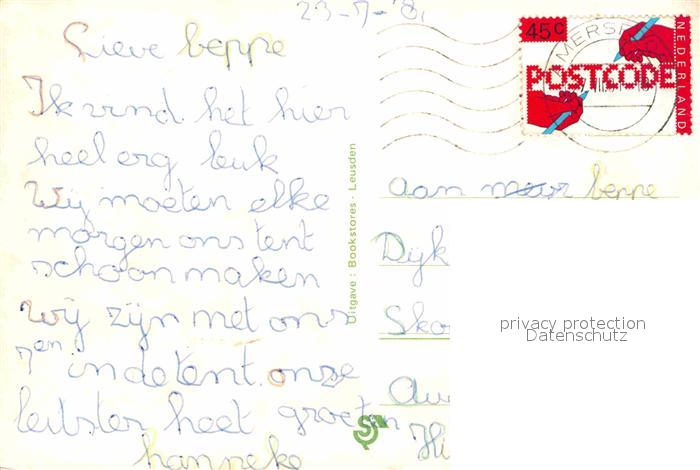 23-7-'81
Lieve beppe
Ik vind het hier
heel erg leuk
Wij moeten elke
morgen ons tent
schoon maken
Wij zijn met ons
7en in de tent. onze
leibster heet groeten
hanneke
Uitgave : Bookstores - Leusden
45c
NEDERLAND
POSTCODE
AMERSF
aan beppe
Dijk
Sko
privacy protection
Datenschutz